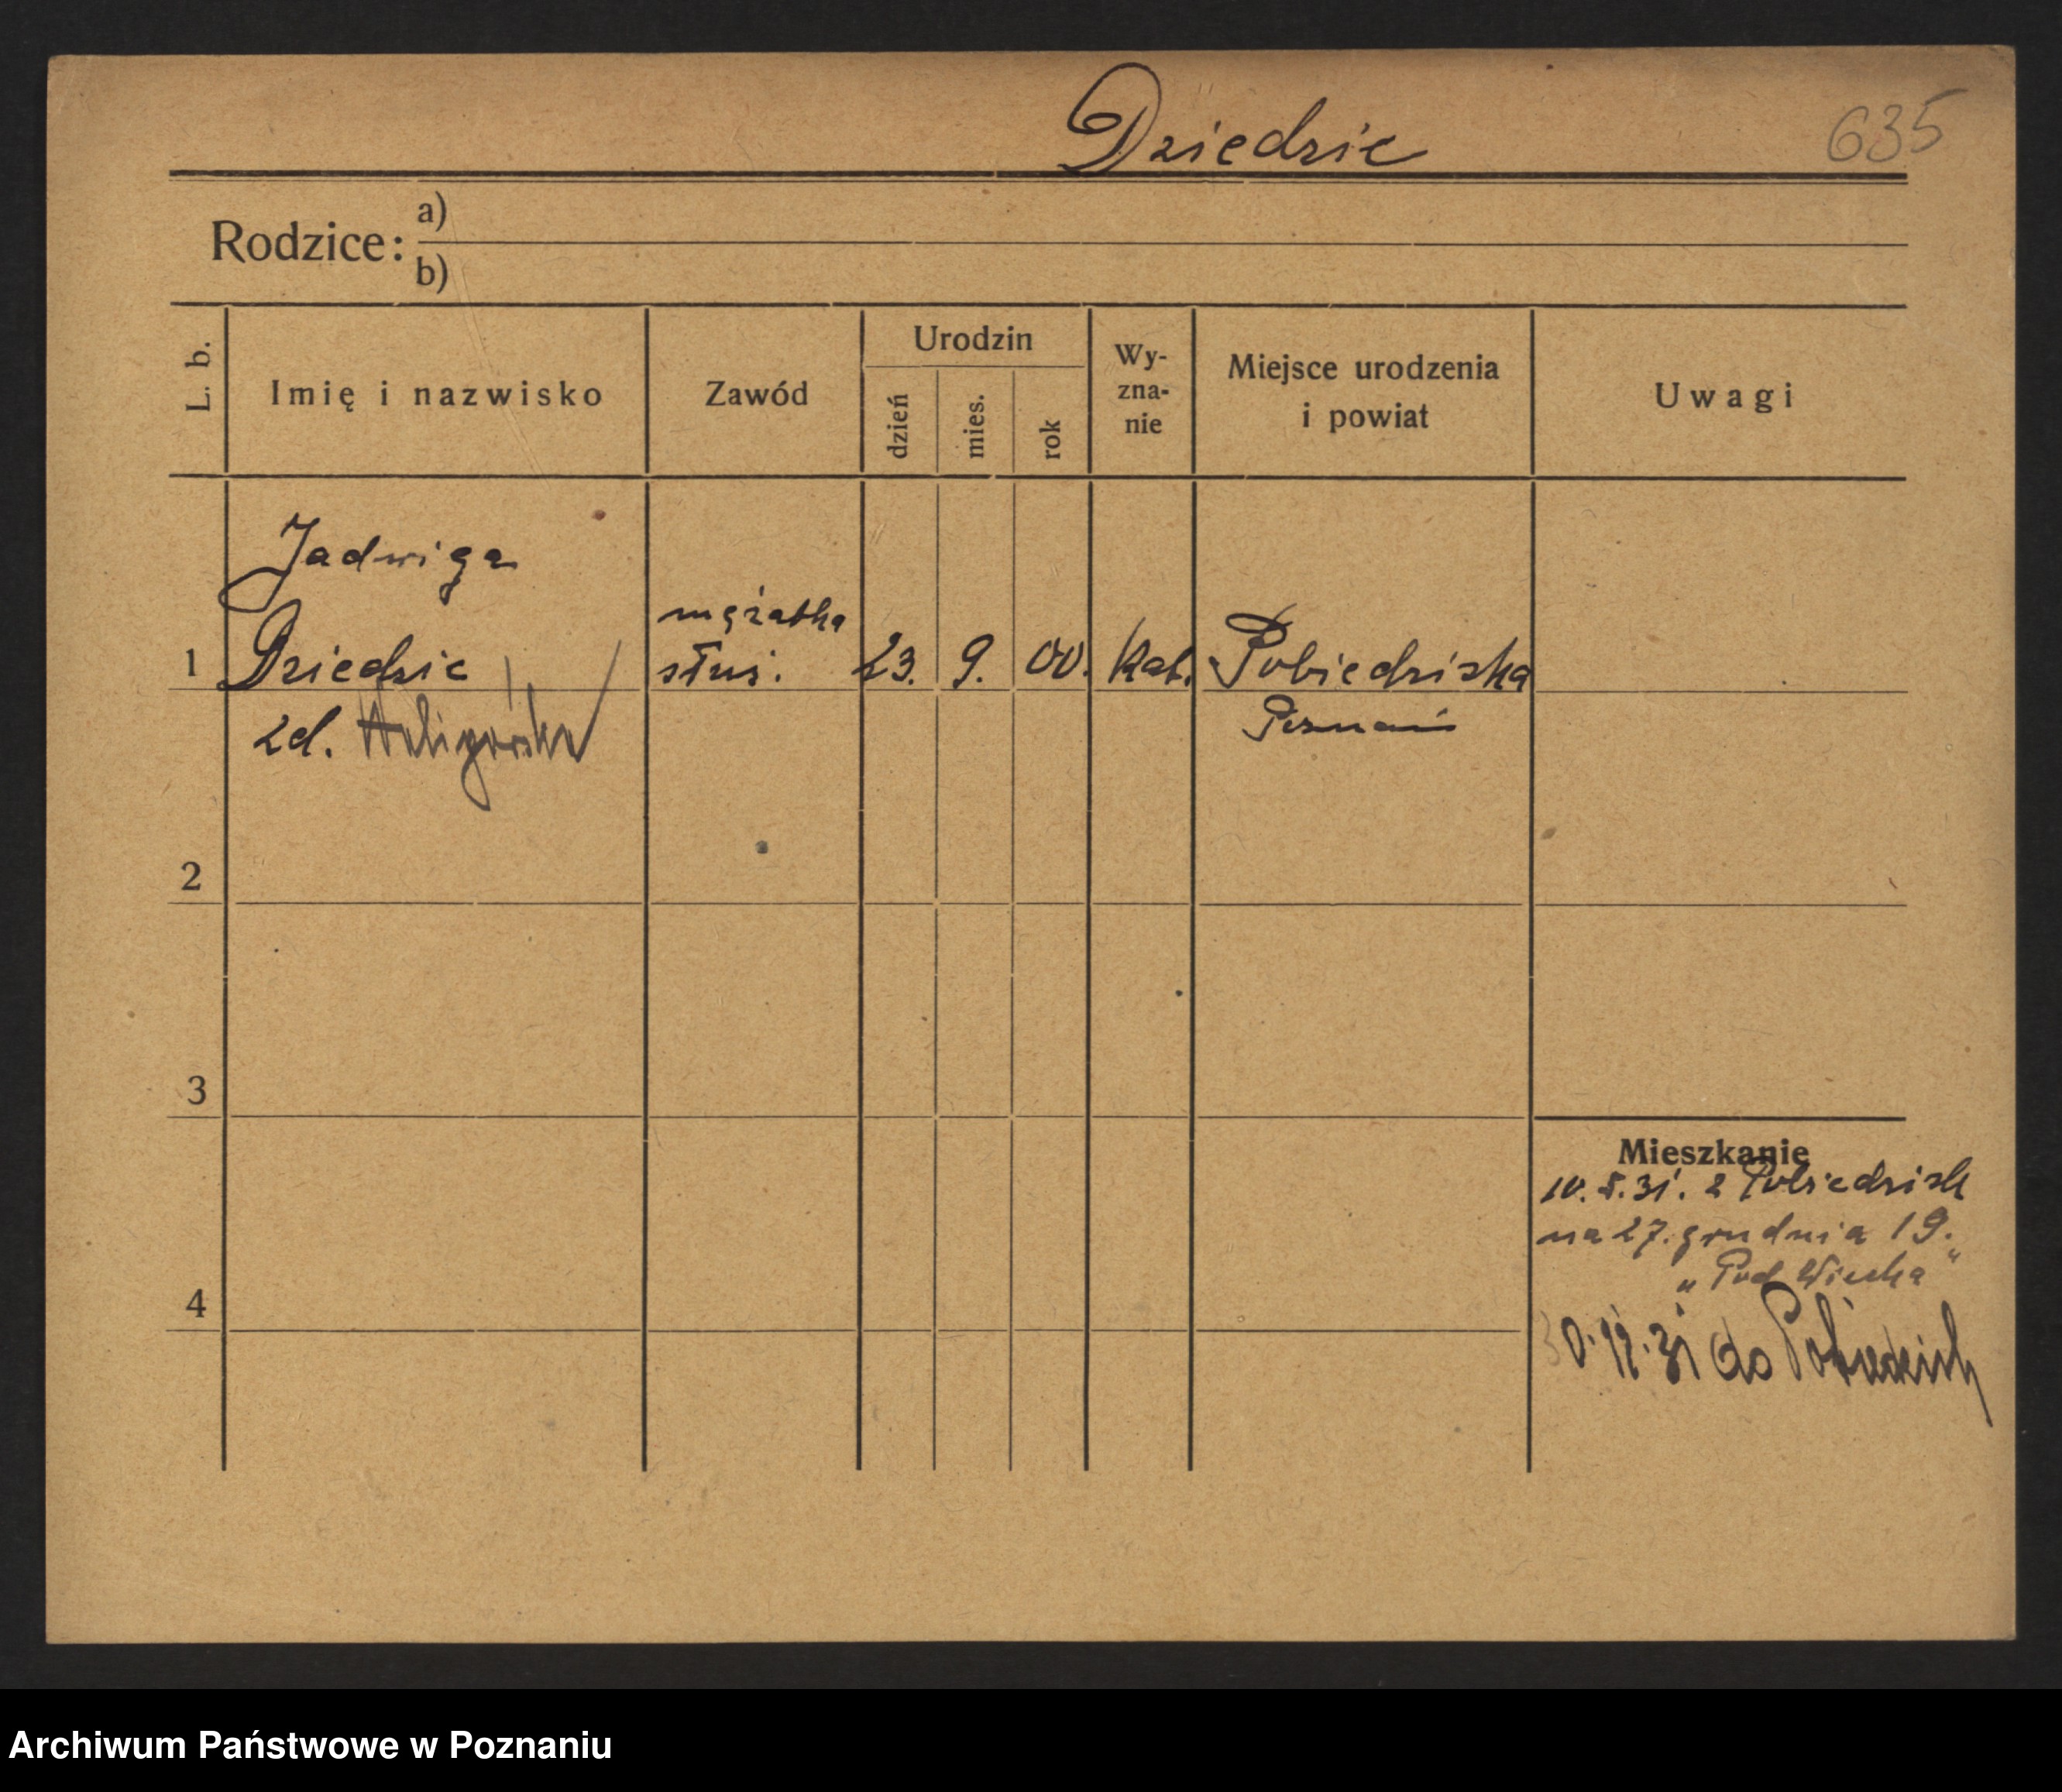 Dziedzic 635
Rodzice: a)
b)
L. b. Imię i nazwisko Zawód Urodzin dzień mies. rok Wy-zna-nie Miejsce urodzenia i powiat Uwagi
Jadwiga
mężatka
1 Dziedzic służ. 23. 9. 00. kat. Pobiedziska
zd. Poznań
2
3
Mieszkanie
10. 5. 31. z Pobiedzisk
na 27. grudnia 19.
„Pod Wiechą"
4
30. 12. 31 do Pobiedzisk
Archiwum Państwowe w Poznaniu